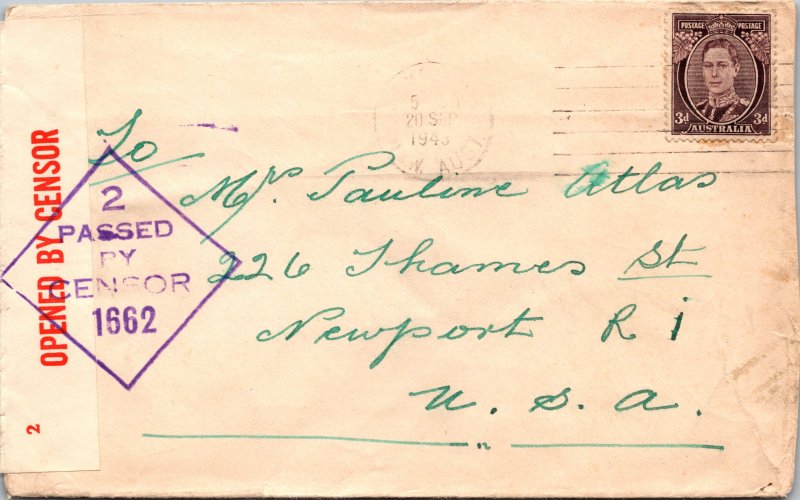 OPENED BY CENSOR
2
2
PASSED
BY
CENSOR
1662
5
20 SEP
1943
POSTAGE POSTAGE
3d 3d
AUSTRALIA
To
Mrs Pauline Atlas
226 Thames St
Newport R i
U. S. A.